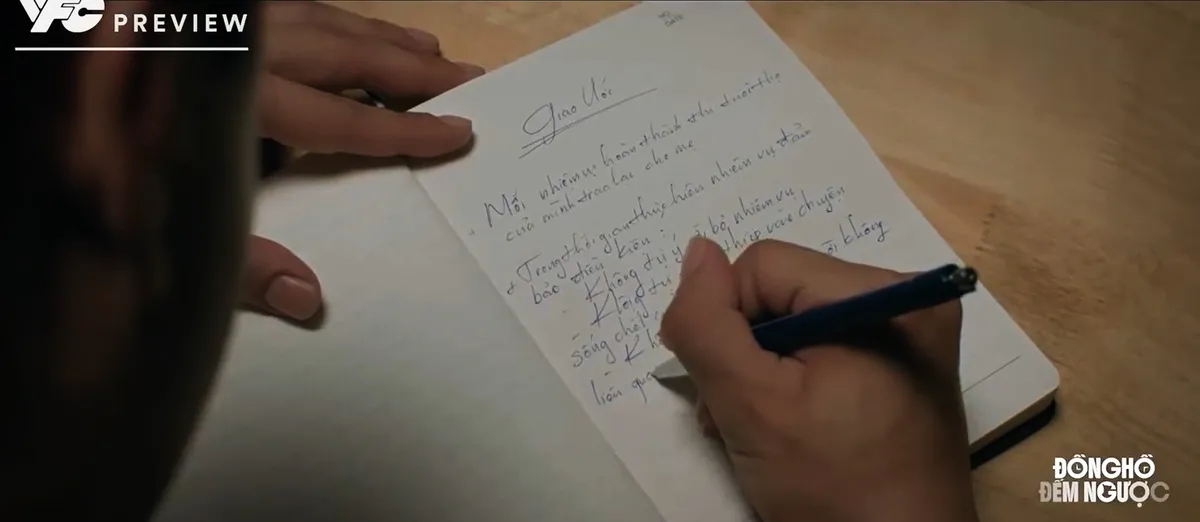 VFC PREVIEW
Giao Ước
Mỗi nhiệm vụ hoàn thành thì tuổi thọ
của mình trao lại cho mẹ
+ Trong thời gian thực hiện nhiệm vụ đảm
bảo điều kiện:
- Không tự ý bỏ nhiệm vụ
- Không tự thiệp vào chuyện
sống chết
- Kh không
liên qua
ĐỒNG HỒ
ĐẾM NGƯỢC